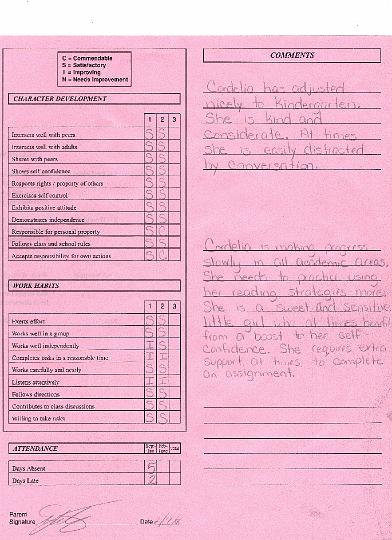 C = Commendable
S = Satisfactory
I = Improving
N = Needs Improvement
CHARACTER DEVELOPMENT
1 2 3
Interacts well with peers S S
Interacts well with adults S S
Shares with peers S S
Shows self confidence S S
Respects rights / property of others S S
Exercises self control S S
Exhibits positive attitude S S
Demonstrates independence S S
Responsible for personal property S C
Follows class and school rules S S
Accepts responsibility for own actions S C
WORK HABITS
1 2 3
Exerts effort S S
Works well in a group S S
Works well independently I S
Completes tasks in a reasonable time I I
Works carefully and neatly S S
Listens attentively I I
Follows directions S S
Contributes to class discussions S S
Willing to take risks S S
ATTENDANCE
Days Absent 5
Days Late 2
Parent
Signature
Date
COMMENTS
Cordelia has adjusted
nicely to Kindergarten.
She is kind and
considerate. At times
she is easily distracted
by conversation.
Cordelia is making progress
slowly in all academic areas.
She needs to practice using
her reading strategies more.
She is a sweet and sensitive
little girl who at times
from a boost to her self
confidence. She requires extra
support at times to complete
an assignment.